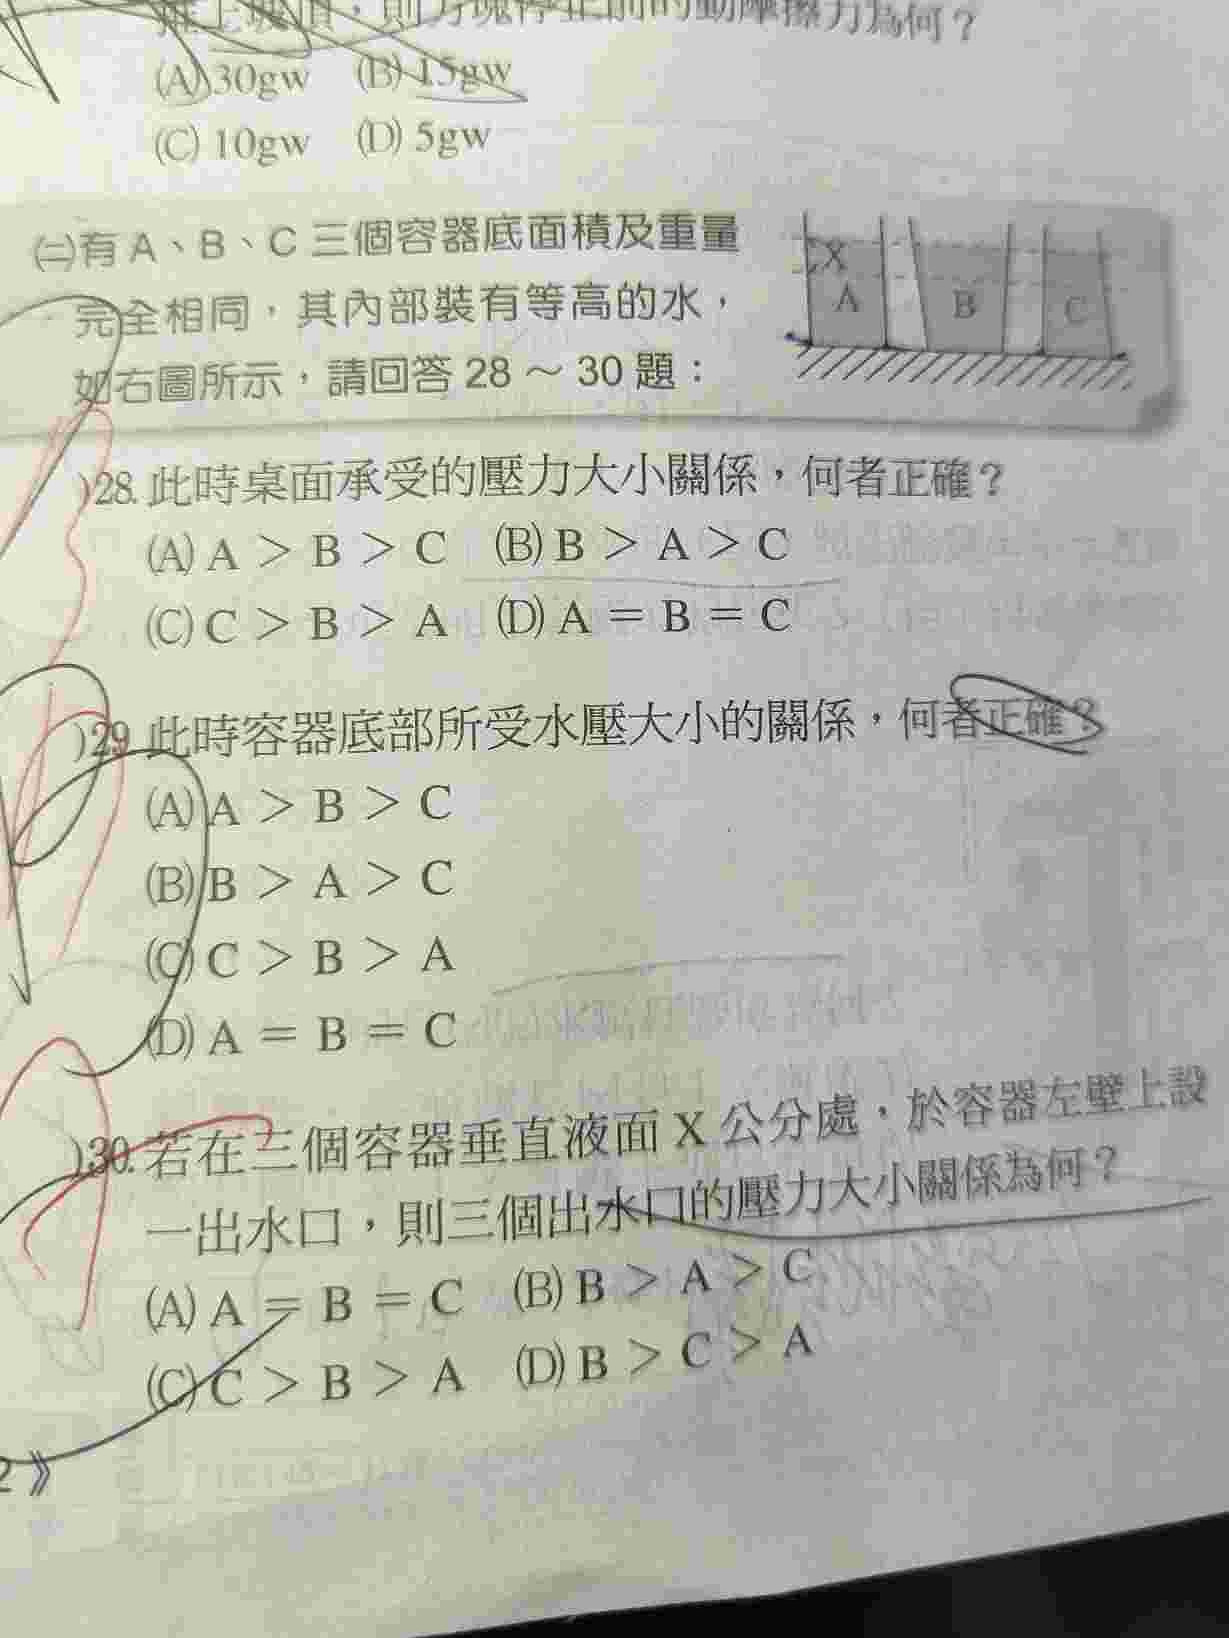 推上境頂,則方塊停止前的動摩擦力為何?
(A) 30gw (B) 15gw
(C) 10gw (D) 5gw
㈡有A、B、C三個容器底面積及重量
完全相同,其內部裝有等高的水,
如右圖所示,請回答28~30題:
X
A B C
)28. 此時桌面承受的壓力大小關係,何者正確?
(A) A > B > C (B) B > A > C
(C) C > B > A (D) A = B = C
)29. 此時容器底部所受水壓大小的關係,何者正確?
(A) A > B > C
(B) B > A > C
(C) C > B > A
(D) A = B = C
)30. 若在三個容器垂直液面X公分處,於容器左壁上設
一出水口,則三個出水口的壓力大小關係為何?
(A) A = B = C (B) B > A > C
(C) C > B > A (D) B > C > A
2》